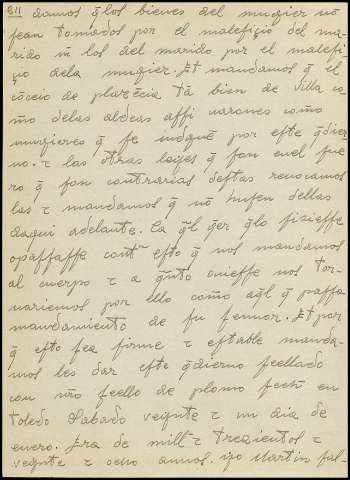 811 damos q̃ los bienes del mugier nõ
sean tomados por el malefiçio del ma-
rido ni los del marido por el malefi-
çio dela mugier. Et mandamos q̃ el
cõceio de plazẽcia tã bien de villa co-
mo delas aldeas assi uarones como
mugieres q̃ se indguẽ por este q̃dier-
no. τ las otras leyes q̃ son enel fue
ro q̃ son contrarias destas reuocamos
las τ mandamos q̃ nõ husen dellas
daqui adelante. Ca q̃l q̃er q̃lo fiziesse
opassasse contᵃ esto q̃ nos mandamos
al cuerpo τ a q̃nto ouiesse nos tor-
nariemos por ello como aq̃l q̃ passa
mandamiento de su sennor. Et por
q̃ esto sea firme τ estable manda-
mos les dar este q̃dierno seellado
con nr̃o seello de plomo fech̃ en
toledo Sabado veynte τ un dia de
enero. Era de mill τ trezientos τ
veynte τ ocho annos. yo Martin fal-